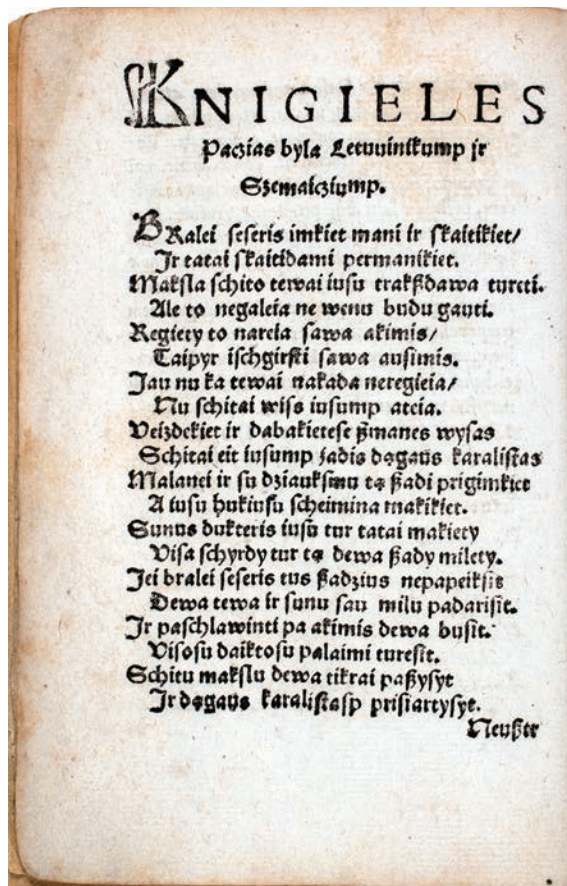 KNIGIELES
Paczias byla Letuuinikump ir
Szemaicziump.
BRalei seseris imkiet mani ir skaitikiet/
Ir tatai skaitidami permanikiet.
Maksla schito tewai iusu trakßdawa tureti.
Ale to negaleia ne wenu budu gauti.
Regiety to nareia sawa akimis/
Taipyr ischgirsti sawa ausimis.
Jau nu ka tewai nakada neregieia/
Nu schitai wiss iusump ateia.
Veizdekiet ir dabakietese ßmanes wysas
Schitai eit iusump zadis dągaus karalistas
Malanei ir su dziauksmu tą ßadi prigimkiet
A iusu hukiusu scheimina makikiet.
Sunus dukteris iusu tur tatai makiety
Visa schyrdy tur tą dewa ßady milety.
Jei bralei seseris tus ßadzius nepapeiksit
Dewa tewa ir sunu sau milu padarisit.
Ir paschlawinti pa akimis dewa busit.
Visosu daiktosu palaimi turesit.
Schitu makslu dewa tikrai paßysyt
Ir dągaus karalistasp prisiartysyt.
Neußtr